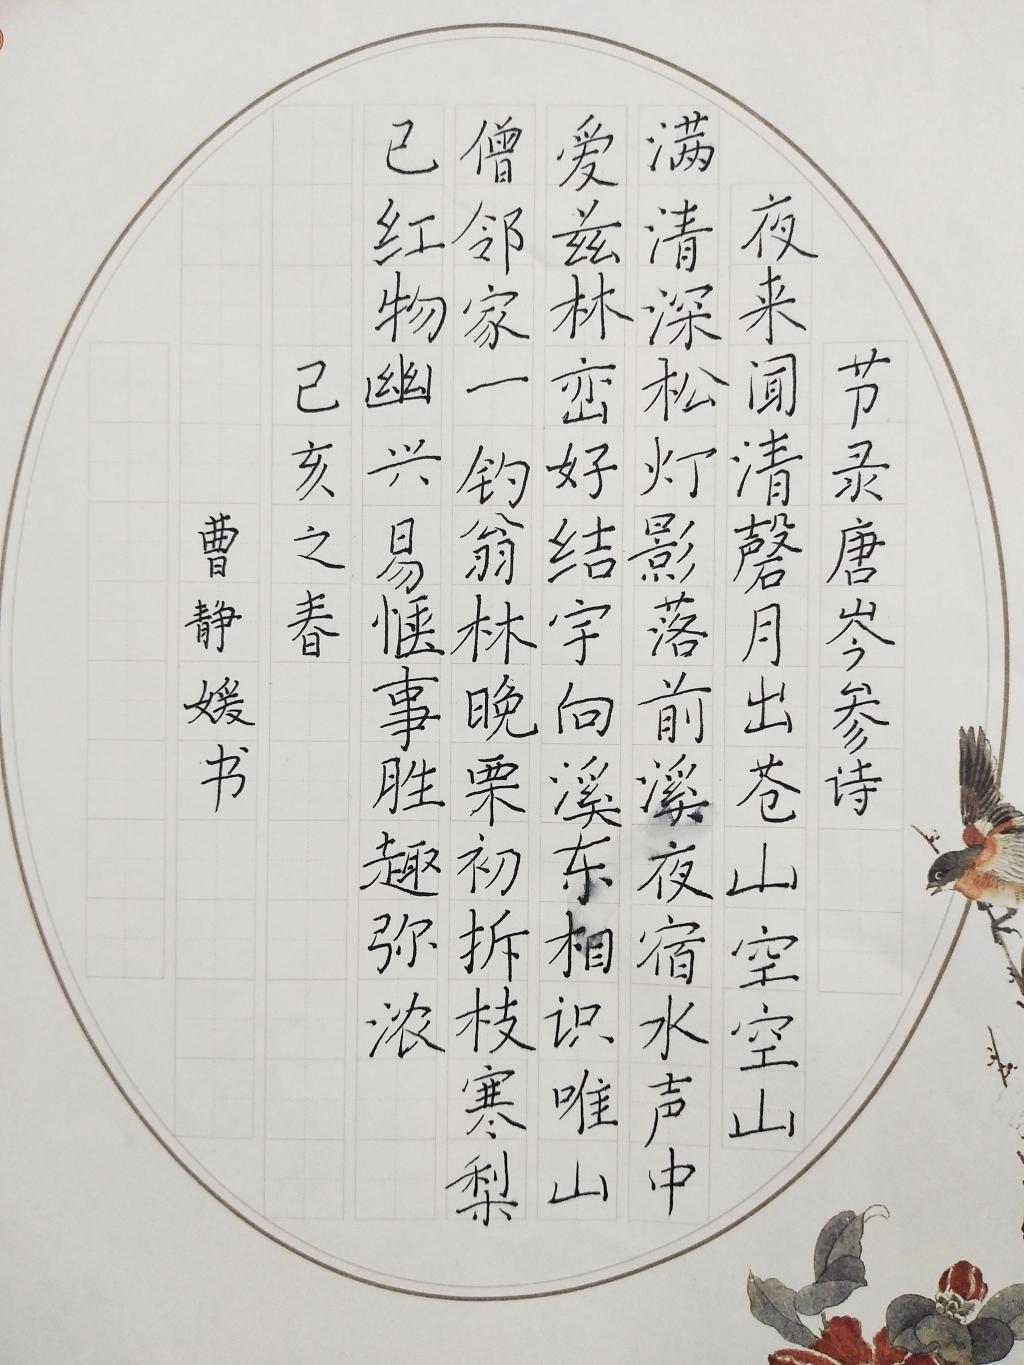 节录唐岑参诗
夜来闻清磬月出苍山空空山
满清深松灯影落前溪夜宿水声中
爱兹林峦好结宇向溪东相识唯山
僧邻家一钓翁林晚栗初拆枝寒梨
已红物幽兴易惬事胜趣弥浓
己亥之春
曹静媛书